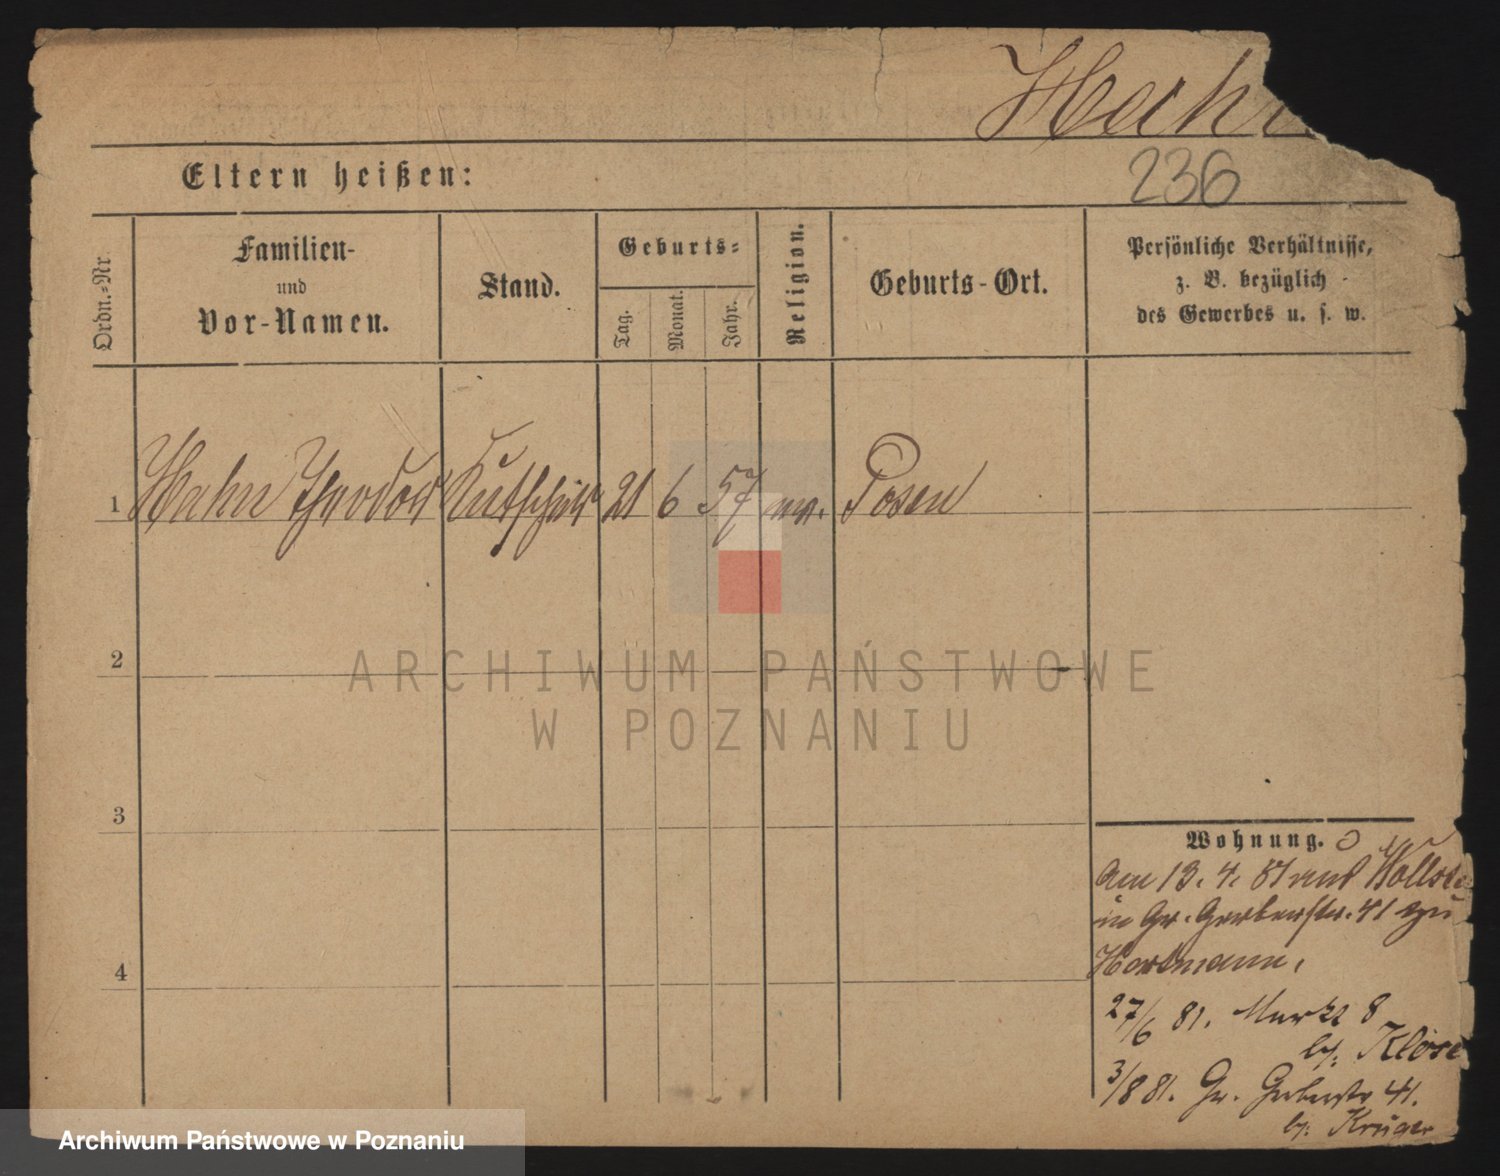 Hahn
236
Eltern heißen:
Ordn.-Nr.
Familien-
und
Vor-Namen.
Stand.
Geburts-
Tag.
Monat.
Jahr.
Religion.
Geburts-Ort.
Persönliche Verhältnisse,
z. B. bezüglich
des Gewerbes u. s. w.
1 Hahn Theodor Kutscher 21 6 57 ev. Posen
2
3
4
Wohnung.
Am 13. 4. 81 aus
in Gr. Gerberstr. 41 zu
Hartmann.
27/6 81. Markt 8
b/: Klose
3/8 81. Gr. Gerberstr 41.
b/: Krüger
ARCHIWUM PAŃSTWOWE
W POZNANIU
Archiwum Państwowe w Poznaniu